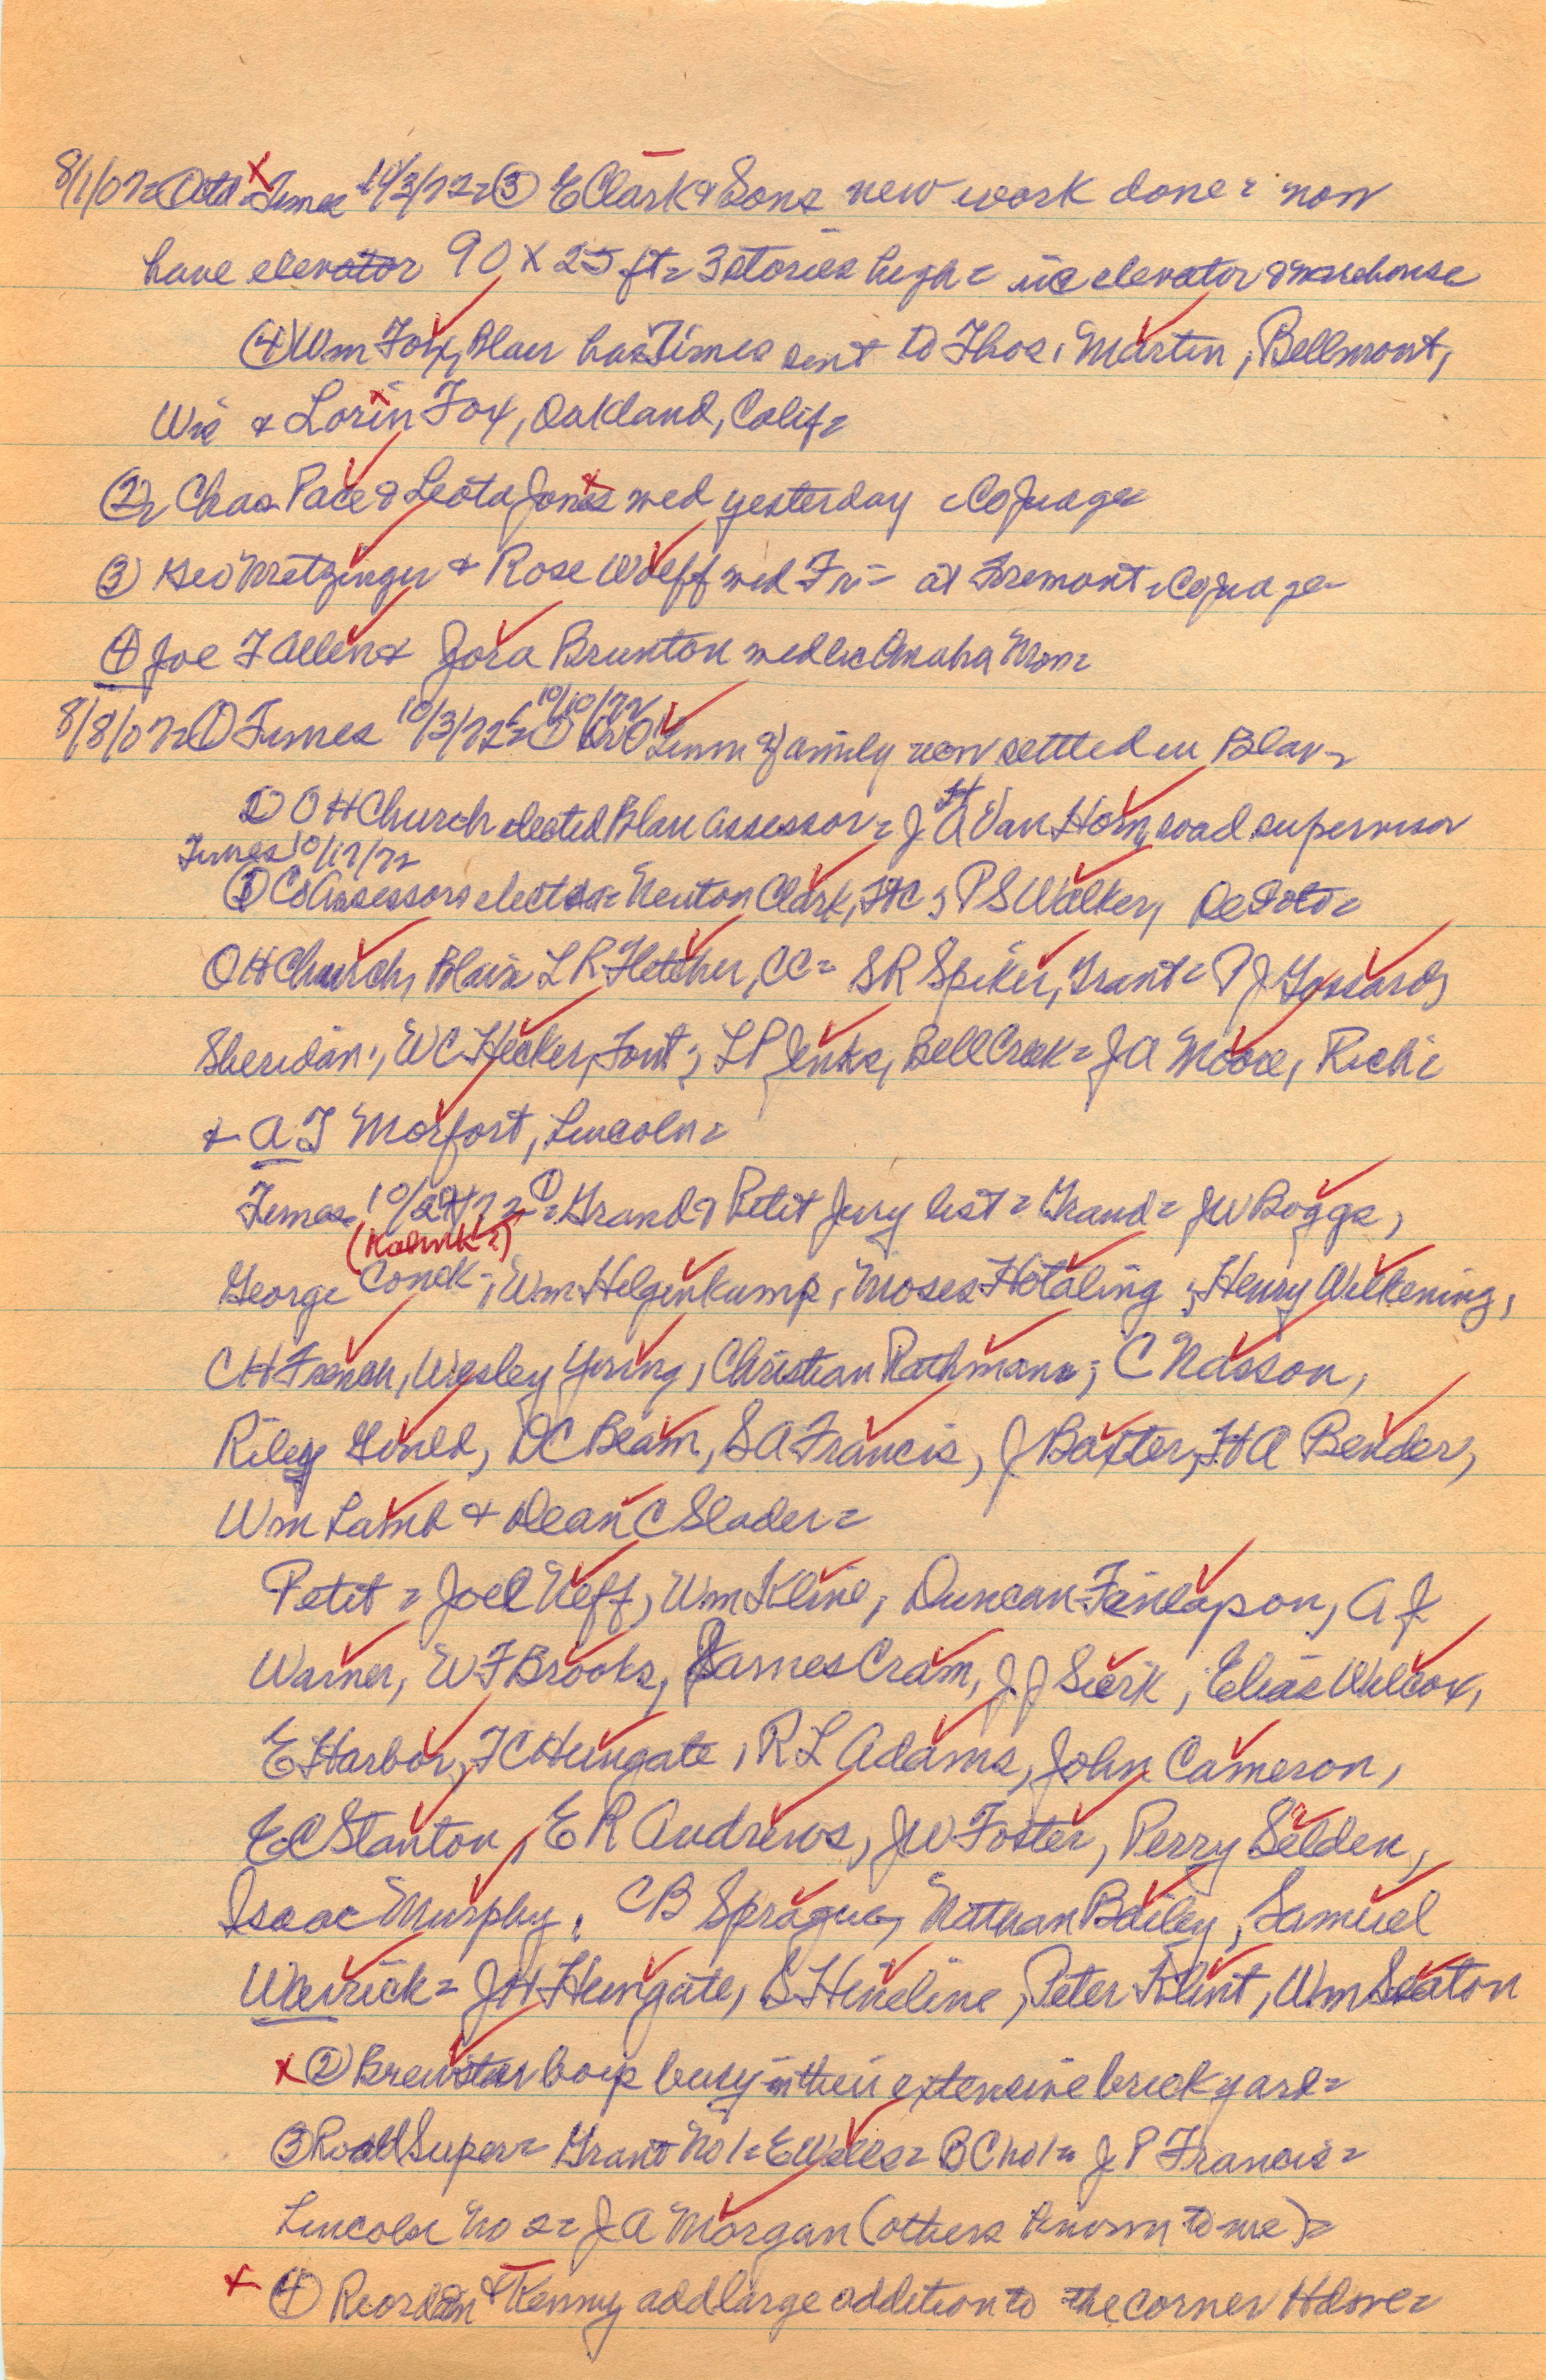 8/1/07= ① Old Times 10/3/72= ③ E Clark & Sons new work done = now
have elevator 90 X 25 ft = 3 stories high = elevator & warehouse
④ Wm Fox, Blair has Times sent to Thos. Martin, Bellmont,
Wis & Lorin Fox, Oakland, Calif=
② Chas Pace & Leota Jones wed yesterday = Co Judge=
③ Geo Metzinger & Rose Wolff wed Fri= at Fremont = Co Judge=
④ Joe F Allen & Jora Brunton wed in Omaha Mon=
8/8/07= ① Times 10/3/72= ① 10/10/72 Linn & family now settled in Blair=
② O H Church elected Blair assessor = J H A Van Horn, road supervisor
Times 10/17/72
① Co Assessors elected = Newton Clark, Ft C; P S Walker, DeSoto=
O H Church, Blair= L R Fletcher, CC= S R Spiker, Grant= P J Gossard,
Sheridan; W C Hecker, Font; L P Jenks, Bell Creek= J A Moore, Rich=
& A J Morfort, Lincoln=
Times 10/24/72 ① = Grand & Petit Jury list = Grand= J W Boggs,
(Kahnk?)
George Conek; Wm Helgenkamp, Moses Hotaling; Henry Wilkening,
C H French, Wesley Young, Christian Rathmann; C Nasson,
Riley Gould, D C Beam, S A Francis, J Baxter, H A Bender,
Wm Lamb & Dean C Slader=
Petit = Joel Neff, Wm Kline, Duncan Finlayson, A J
Warner, W F Brooks, James Cram, J J Sierk, Elias Wilcox,
E Harbor, F C Hungate, R L Adams, John Cameron,
E C Stanton, E R Andrews, J W Foster, Perry Selden,
Isaac Murphy, C B Sprague, Nathan Bailey, Samuel
Warrick= J H Hungate, S Hineline, Peter Flint, Wm Seaton
X ② Brewster boys busy in their extensive brick yard=
③ Road Super= Grant No 1= E Wells= B C No 1= J P Francis=
Lincoln No 2= J A Morgan (others known to me)=
X ④ Reordan & Kenny add large addition to the corner Hdwe=